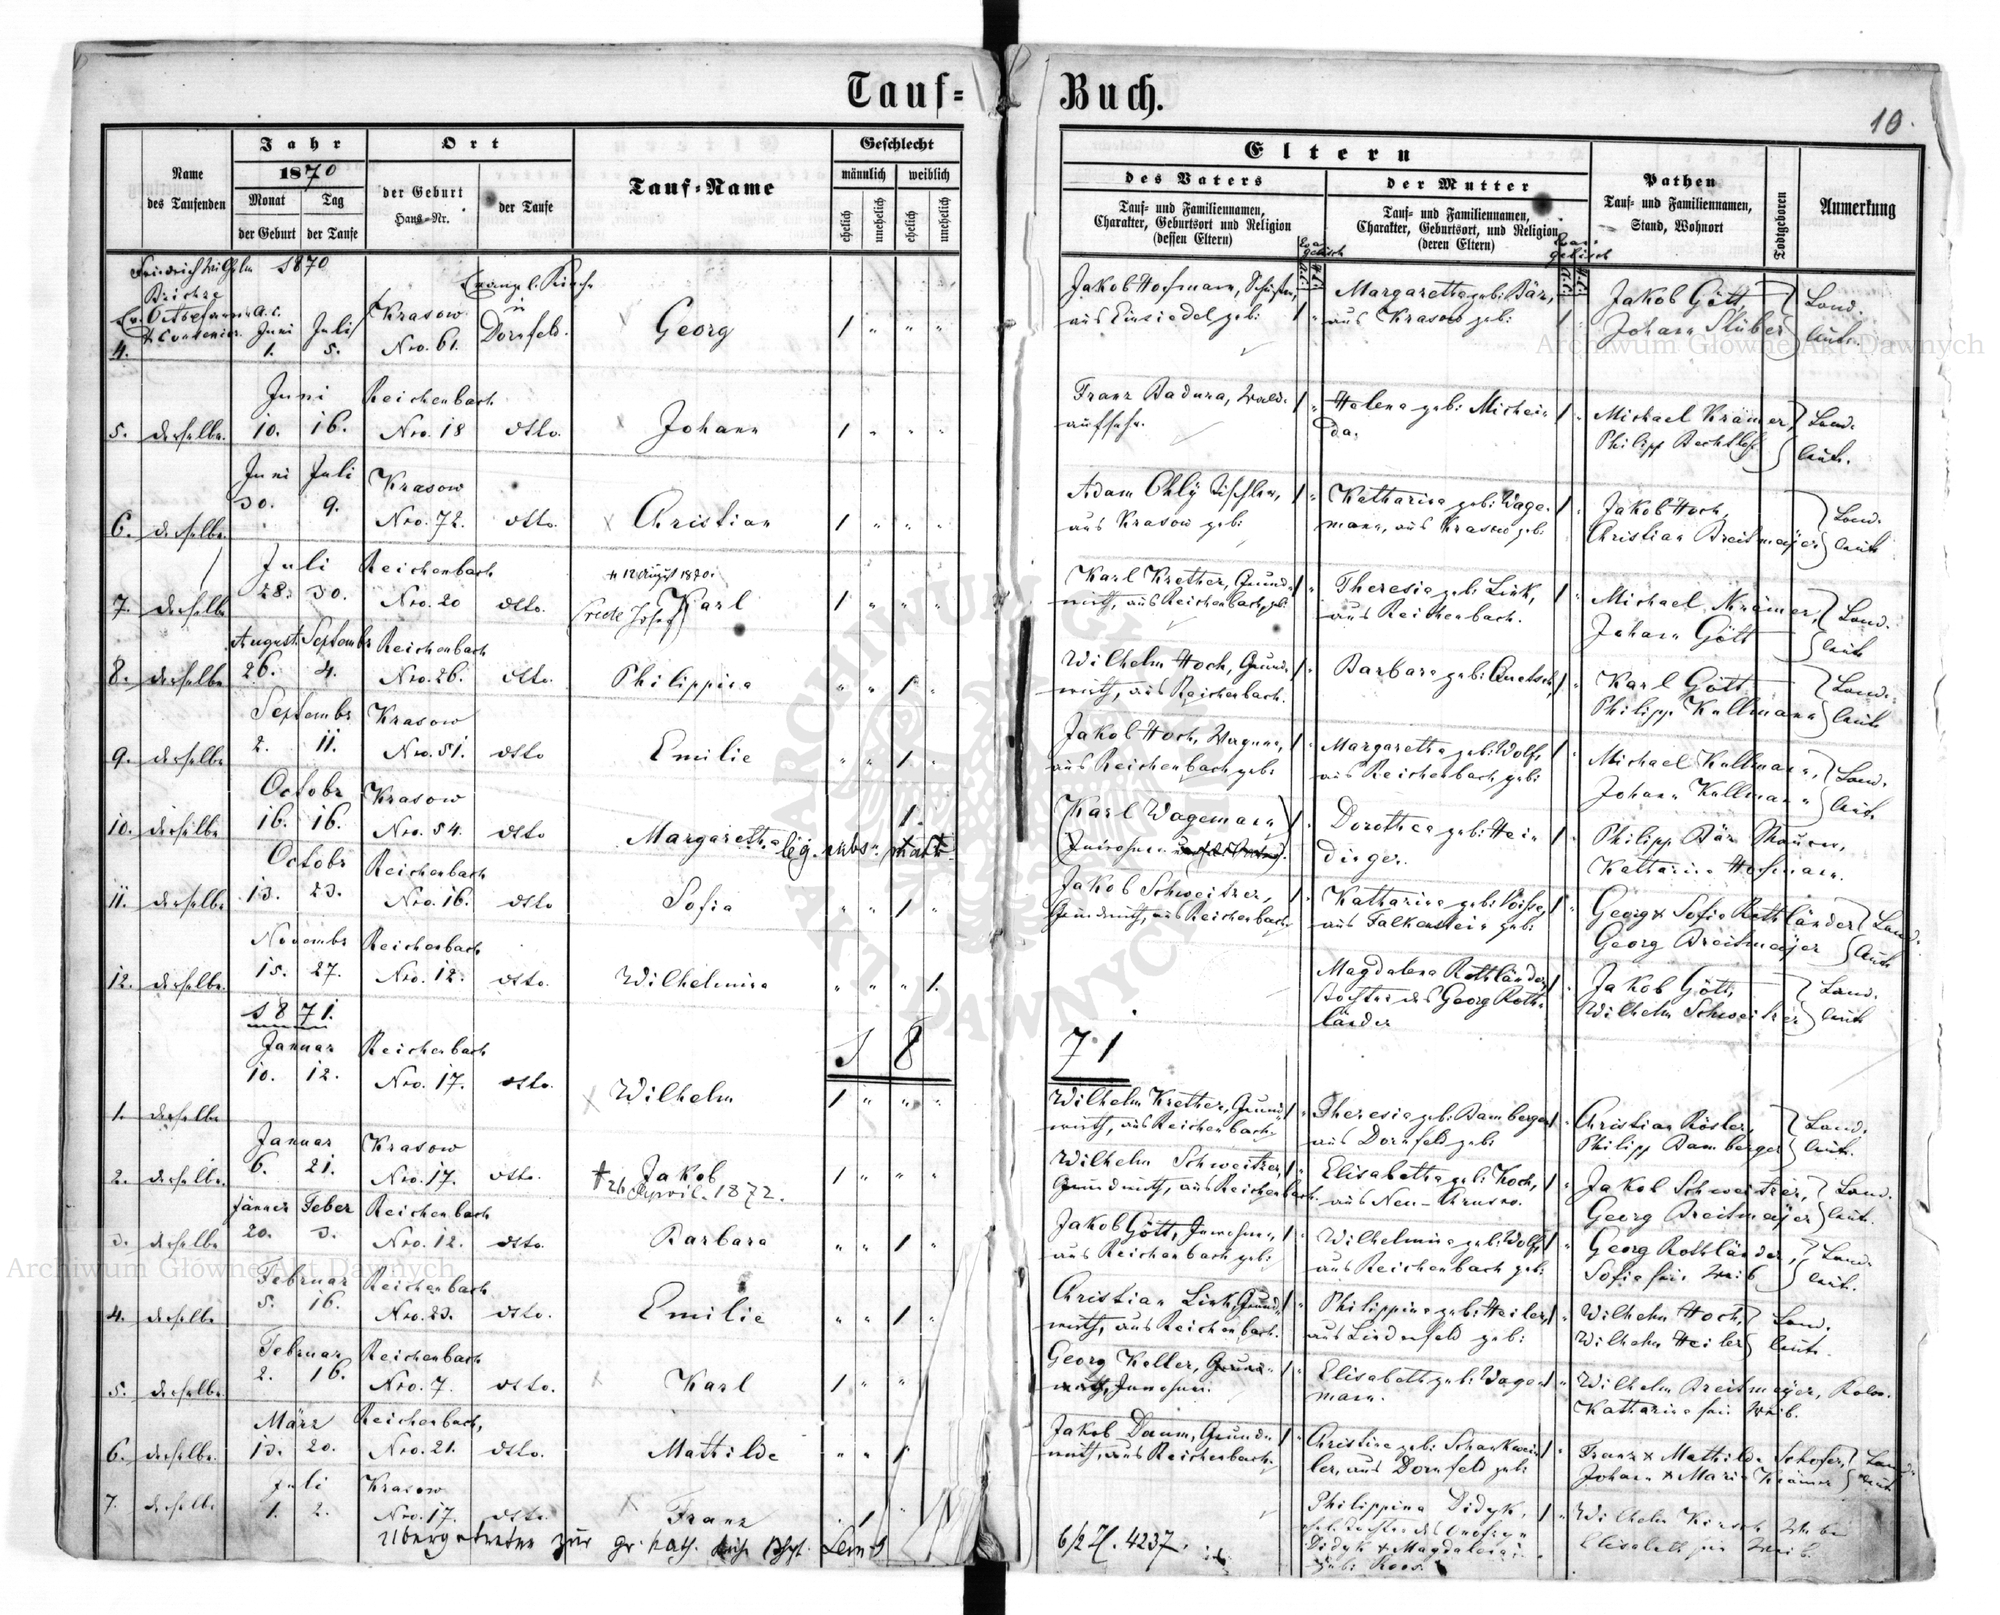 Tauf-Buch.
10.
Name des Taufenden
Jahr 1870
Monat der Geburt
Tag der Taufe
Ort
der Geburt Haus-Nr.
der Taufe
Tauf-Name
Geschlecht
männlich
weiblich
ehelich
unehelich
ehelich
unehelich
Eltern
des Vaters
Tauf- und Familiennamen, Charakter, Geburtsort und Religion (dessen Eltern)
der Mutter
Tauf- und Familiennamen, Charakter, Geburtsort, und Religion (deren Eltern)
Pathen
Tauf- und Familiennamen, Stand, Wohnort
Todtgeboren
Anmerkung
Friedrich Wilhelm 1870
4. Juni 1. Juli 5. Krasow Nro. 61. Dornfeld. Georg 1 " " "
Jakob Hofmann,
aus Einsiedel geb:
Margaretha geb: Bär,
aus Krasow geb:
Jakob Gött
Johann Stuber
Land-
leute.
5. derselbe. Juni 10. 16. Reichenbach Nro. 18 dtto. Johann 1 " " "
Franz Badura, Wald-
aufseher.
Helena geb: Michei-
da.
Michael Krämer,
Philipp Bechtloff
Land-
leute.
6. derselbe. Juni 30. Juli 9. Krasow Nro. 72. dtto. Christian 1 " " "
Adam Ohly Tischler,
aus Krasow geb:
Katharina geb: Wage-
mann, aus Krasow geb:
Jakob Hoch,
Christian Breitmayer
Land-
leute
7. derselbe Juli 28. 30. Reichenbach Nro. 20 dtto. † 12 August 1870. Karl (recte Josef) 1 " " "
Karl Krether, Grund-
wirth, aus Reichenbach, geb:
Theresia geb: Link,
aus Reichenbach.
Michael Krämer,
Johann Gött
Land-
leute
8. derselbe August 26. Septembr 4. Reichenbach Nro. 26. dtto. Philippina " " 1 "
Wilhelm Hoch, Grund-
wirth, aus Reichenbach.
Barbara geb: Quetsch,
Karl Gött
Philipp Kullmann
Land-
leute
9. derselbe Septembr 2. 11. Krasow Nro. 51. dtto Emilie " " 1 "
Jakob Hoch, Wagner,
aus Reichenbach geb:
Margaretha geb: Wolf,
aus Reichenbach geb:
Michael Kullmann,
Johann Kullmann
Land-
leute
10. derselbe Octobr 16. 16. Krasow Nro. 54. dtto Margaretha leg. subs. matr. 1.
(Karl Wagemann)
Inwohner
Dorothea geb: Hei-
dinger.
Philipp Bär Maurer,
Katharina Hofmann.
11. derselbe Octobr 13. 23. Reichenbach Nro. 16. dtto Sofia " " 1 "
Jakob Schweitzer,
Grundwirth, aus Reichenbach
Katharina geb: Weiss,
aus Falkenstein geb:
Georg & Sofie Rothländer
Georg Breitmayer
Land-
leute
12. derselbe Novembr 15. 27. Reichenbach Nro. 12. dtto. Wilhelmina " " " 1.
Magdalena Rothländer,
Tochter des Georg Roth-
länder
Jakob Gött,
Wilhelm Schweitzer
Land-
leute
1871.
1. derselbe Januar 10. 12. Reichenbach Nro. 17. dtto. Wilhelm 1 " " "
Wilhelm Krether, Grund-
wirth, aus Reichenbach.
Theresia geb: Bamberger
aus Dornfeld geb:
Christian Rösler,
Philipp Bamberger
Land-
leute.
2. derselbe. Januar 6. 21. Krasow Nro. 17. dtto. Jakob † 26 April. 1872. 1 " " "
Wilhelm Schweitzer,
Grundwirth, aus Reichenbach.
Elisabetha geb: Koch,
aus Neu-Chrusno.
Jakob Schweitzer,
Georg Breitmayer
Land-
leute.
3. derselbe Jänner 20. Feber 3. Reichenbach Nro. 12. dtto. Barbara " " 1 "
Jakob Gött, Inwohner,
aus Reichenbach geb:
Wilhelmina geb: Wolf,
aus Reichenbach geb:
Georg Rothländer,
Sofie sein Weib
Land-
leute.
4. derselbe Februar 5. 16. Reichenbach Nro. 23. dtto. Emilie " " 1 "
Christian Link, Grund-
wirth, aus Reichenbach.
Philippina geb: Heiler,
aus Lindenfeld geb:
Wilhelm Hoch,
Wilhelm Heiler
Land-
leute.
5. derselbe. Februar 2. 16. Reichenbach Nro. 7. dtto. Karl 1 " "
Georg Keller, Grund-
wirth, Inwohner.
Elisabeth geb: Wage-
mann.
Wilhelm Breitmayer,
Katharina sein Weib.
6. derselbe. März 13. 20. Reichenbach, Nro. 21. dtto. Mathilde " " 1
Jakob Daum, Grund-
wirth, aus Reichenbach.
Christine geb: Schankwei-
ler, aus Dornfeld geb:
Franz & Mathilde Schofer,
Johann & Maria Krämer
Land-
leute
7. derselbe Juli 1. 2. Krasow Nro. 17. dtto. Franz 1
Übergetreten zur gr. kath.
6/2 71. 4237.
Philippina Didyk,
Didyk & Magdalena
geb: Koos.
Wilhelm Kirsch
Elisabeth sein Weib.
Archiwum Główne Akt Dawnych